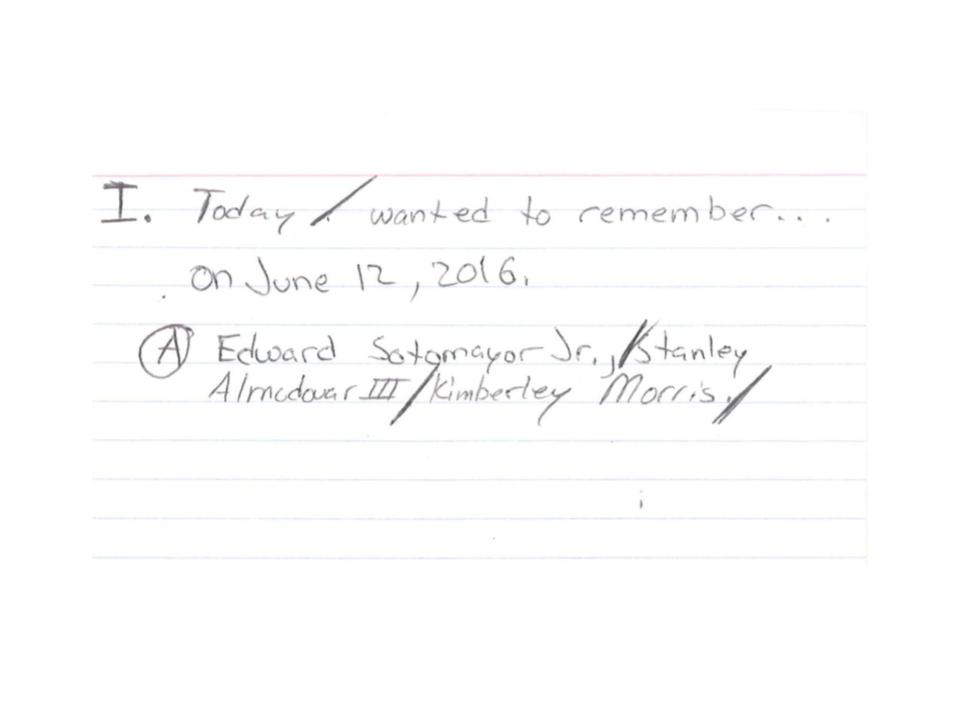 I. Today / wanted to remember...
on June 12, 2016.
Ⓐ Edward Sotomayor Jr., / Stanley
Almodovar III / Kimberley Morris. /